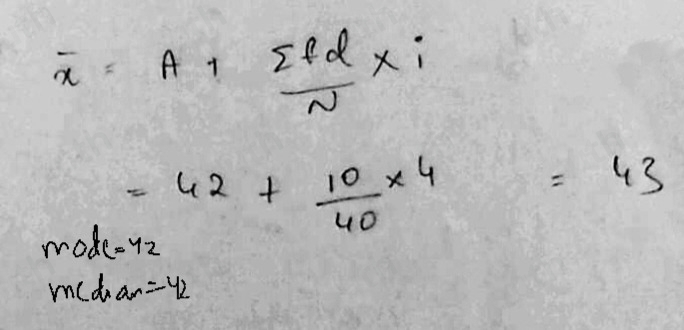 x̄ = A + Σfd/N × i
= 42 + 10/40 × 4 = 43
mode=42
median=42